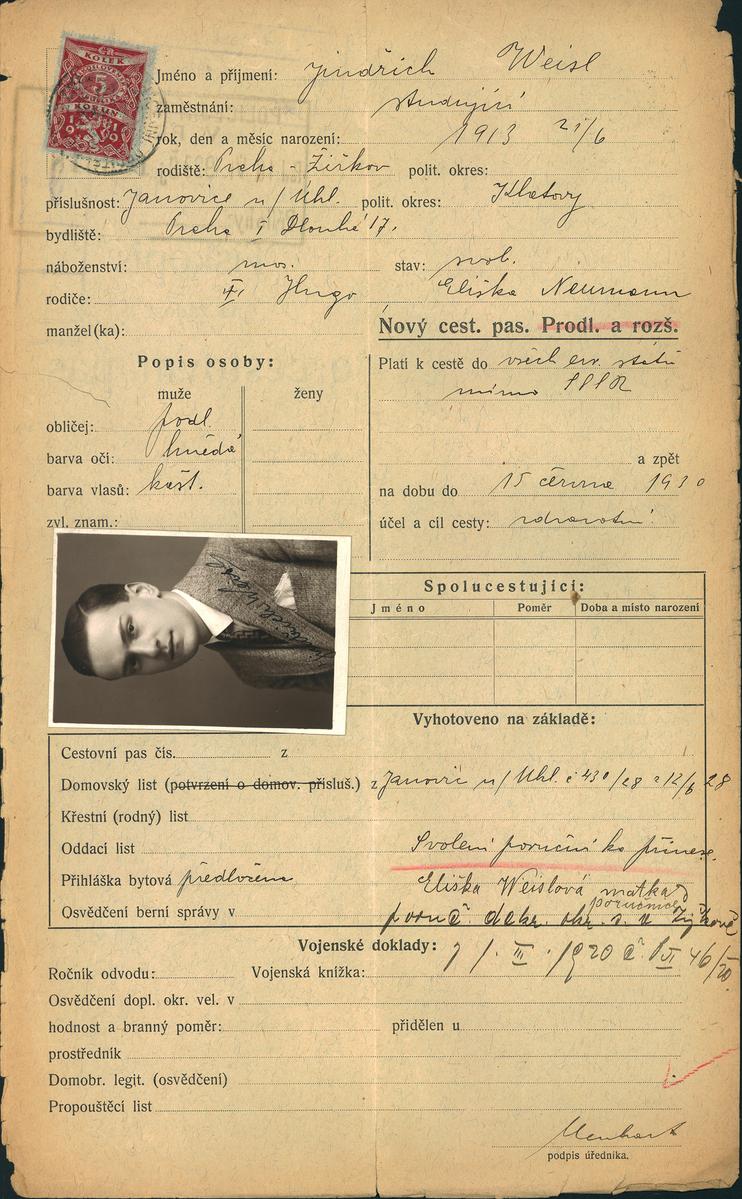 ČR
KOLEK
5
KORUN
1919
Jméno a příjmení: Jindřich Weisl
zaměstnání: studující
rok, den a měsíc narození: 1913 21/6
rodiště: Praha - Žižkov polit. okres:
příslušnost: Janovice n/Uhl. polit. okres: Klatovy
bydliště: Praha I Dlouhá 17.
náboženství: mos. stav: svob.
rodiče: Hugo Eliška Neumann
manžel(ka):
Nový cest. pas. Prodl. a rozš.
Popis osoby:
muže ženy
obličej: podl.
barva očí: hnědá
barva vlasů: kašt.
zvl. znam.:
Platí k cestě do všech ev. států
mimo SSSR
a zpět
na dobu do 15 června 1930
účel a cíl cesty: zdravotní
Jindřich Weisl
Spolucestující:
Jméno Poměr Doba a místo narození
Vyhotoveno na základě:
Cestovní pas čís. z
Domovský list (potvrzení o domov. přísluš.) z Janovic n/Uhl. č 430/28 z 12/6 28
Křestní (rodný) list
Oddací list Svolení poruční ku
Přihláška bytová předložena Eliška Weislová matka
poručnice
Osvědčení berní správy v poruč. dekr. okr. s. v Žižkově
Vojenské doklady: 1. III. 1920 č. P VI 46/20
Ročník odvodu: Vojenská knížka:
Osvědčení dopl. okr. vel. v
hodnost a branný poměr: přidělen u
prostředník
Domobr. legit. (osvědčení)
Propouštěcí list
Menhart
podpis úředníka.